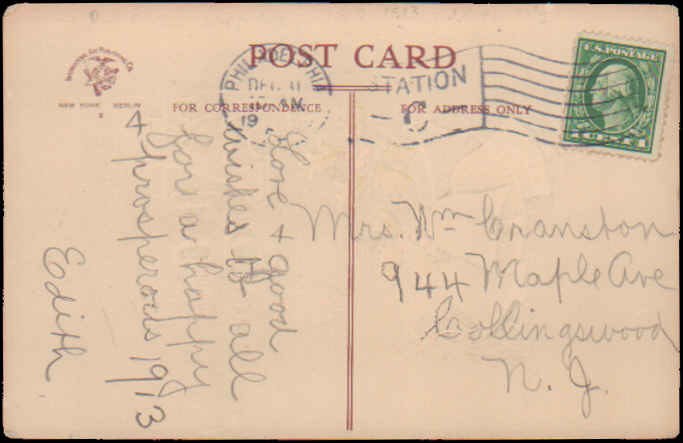 POST CARD
NEW YORK BERLIN
FOR CORRESPONDENCE
FOR ADDRESS ONLY
PHILADELPHIA
DEC 31
AM
19
STATION
U.S. POSTAGE
Love & good
wishes to all
for a happy
& prosperous 1913
Edith
Mrs. Wm Cranston
944 Maple Ave
Collingswood
N. J.